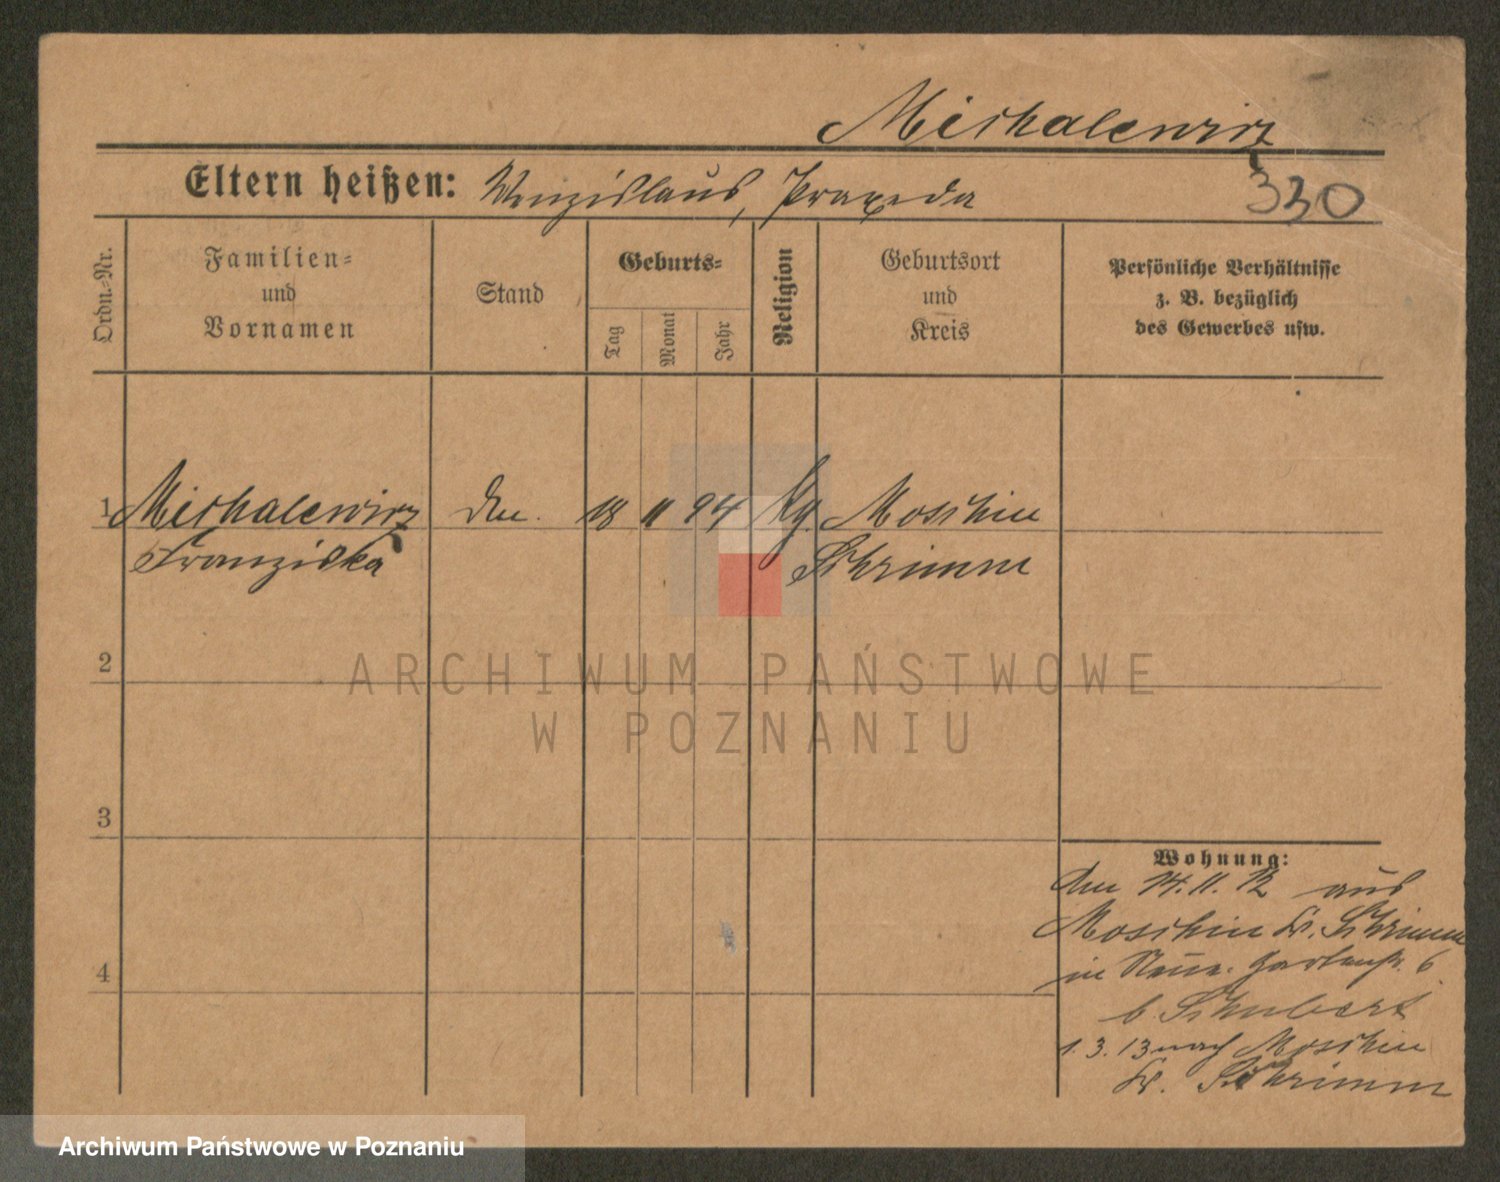 Michalewicz
Eltern heißen: Wenzislaus, Praxeda
330
Ordn.-Nr.
Familien-
und
Vornamen
Stand
Geburts-
Tag
Monat
Jahr
Religion
Geburtsort
und
Kreis
Persönliche Verhältnisse
z. B. bezüglich
des Gewerbes usw.
1 Michalewicz 18 11 94 Moschin
Franziska Schrimm
2
ARCHIWUM PAŃSTWOWE
W POZNANIU
3
4
Wohnung:
14. 11. 12 aus
Moschin Kr. Schrimm
in Gartenstr. 6
b. Schubert
1. 3. 13 nach Moschin
Kr. Schrimm
Archiwum Państwowe w Poznaniu